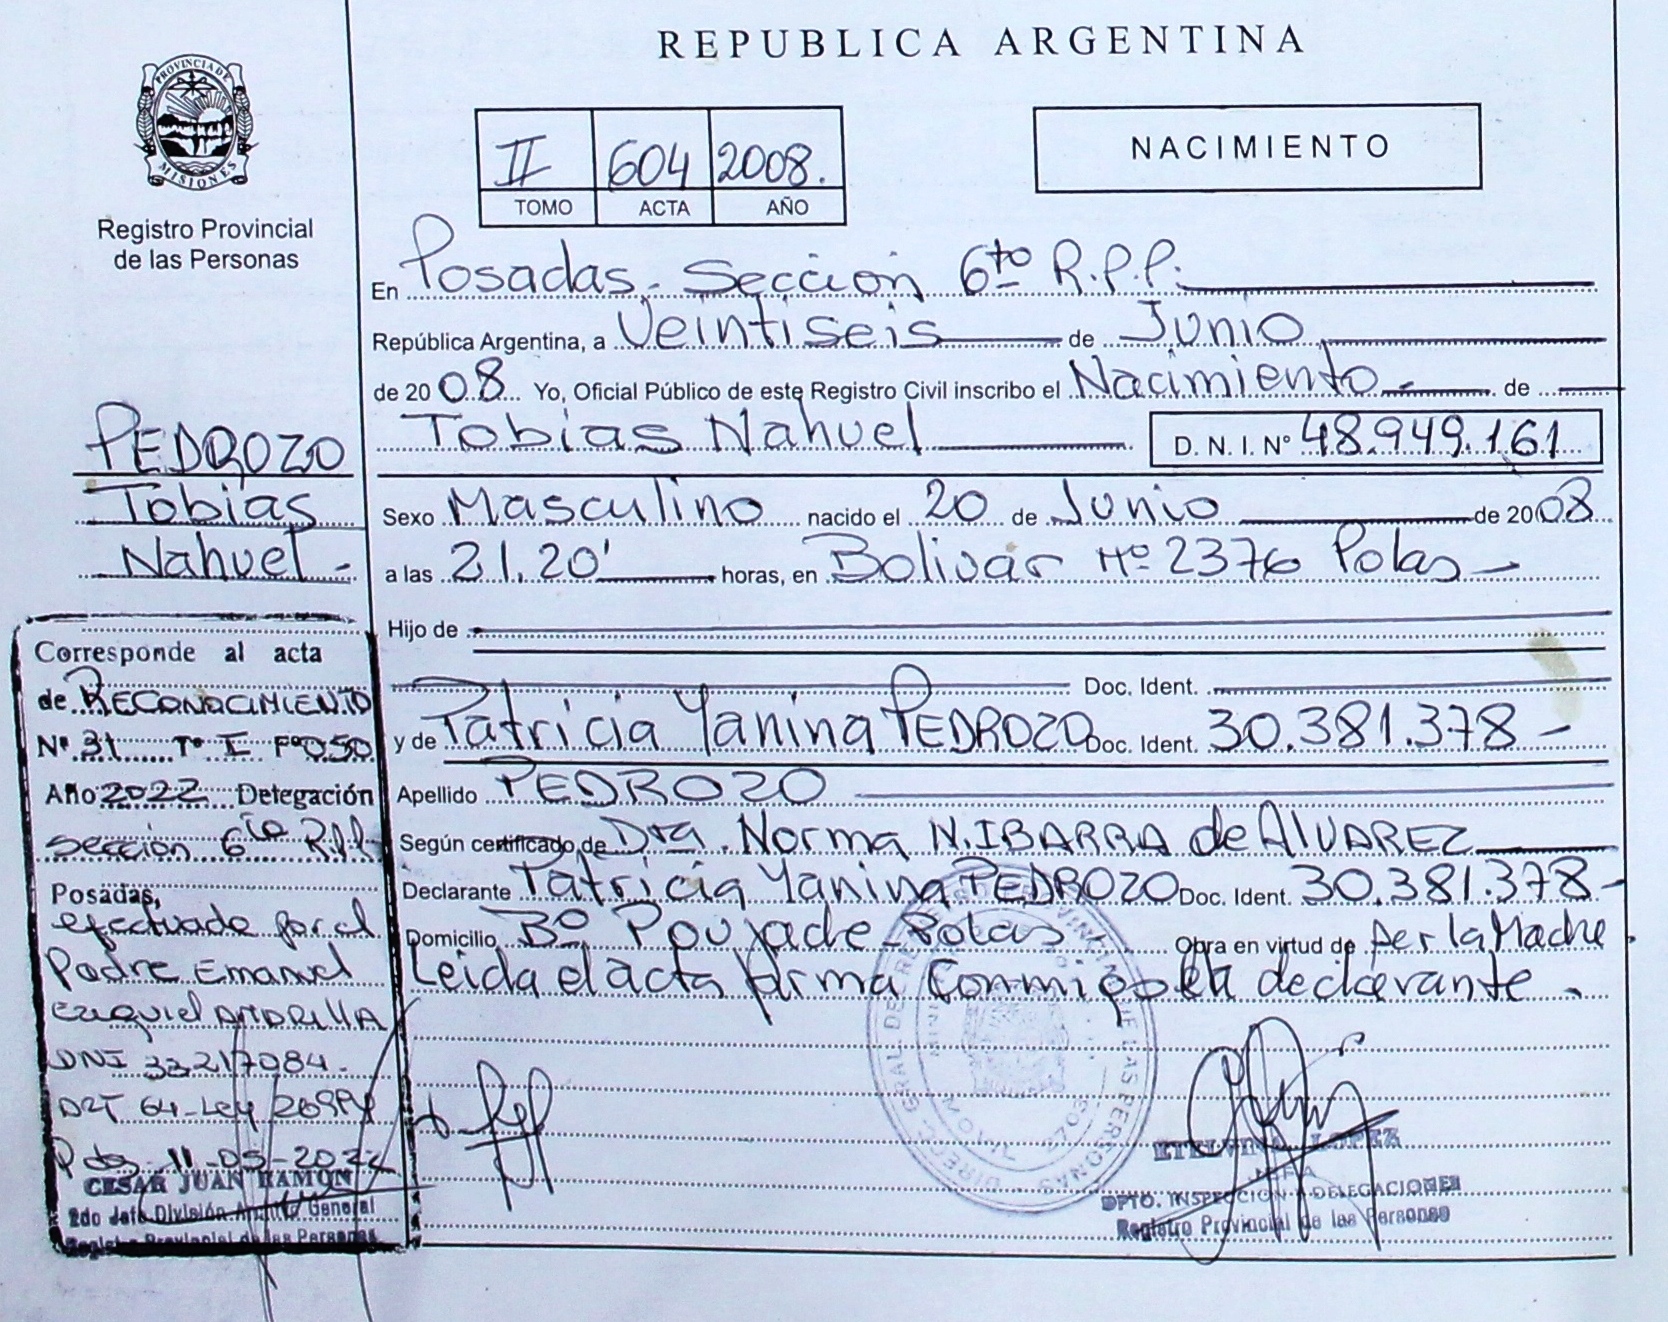 REPUBLICA ARGENTINA
PROVINCIA DE MISIONES
Registro Provincial
de las Personas
II 604 2008.
TOMO ACTA AÑO
NACIMIENTO
En Posadas. Sección 6to R.P.P.
República Argentina, a Veintiseis de Junio
de 2008 Yo, Oficial Público de este Registro Civil inscribo el Nacimiento de
Tobias Nahuel D. N. I. Nº 48.949.161
Sexo Masculino nacido el 20 de Junio de 2008
a las 21.20' horas, en Bolivar Nº 2376 Pdas
Hijo de
Doc. Ident.
y de Patricia Yanina PEDROZO Doc. Ident. 30.381.378
Apellido PEDROZO
Según certificado de Dra. Norma N. IBARRA de ALVAREZ
Declarante Patricia Yanina PEDROZO Doc. Ident. 30.381.378
Domicilio Bº Poujade Pdas. Obra en virtud de ser la Madre
Leida el acta firma conmigo la declarante.
PEDROZO
Tobias
Nahuel
Corresponde al acta
de RECONOCIMIENTO
Nº 31 Tº I Fº 050
Año 2022 Delegación
Sección 6ta R.P.P.
Posadas,
efectuado por el
Padre Emanuel
Ezequiel
DNI 33217084.
Pdas 11-05-2022
CESAR JUAN RAMON
2do Jefe División Archivo General
Registro Provincial de las Personas
ETELVINA LOPEZ
JEFA
DPTO. INSPECCION Y DELEGACIONES
Registro Provincial de las Personas